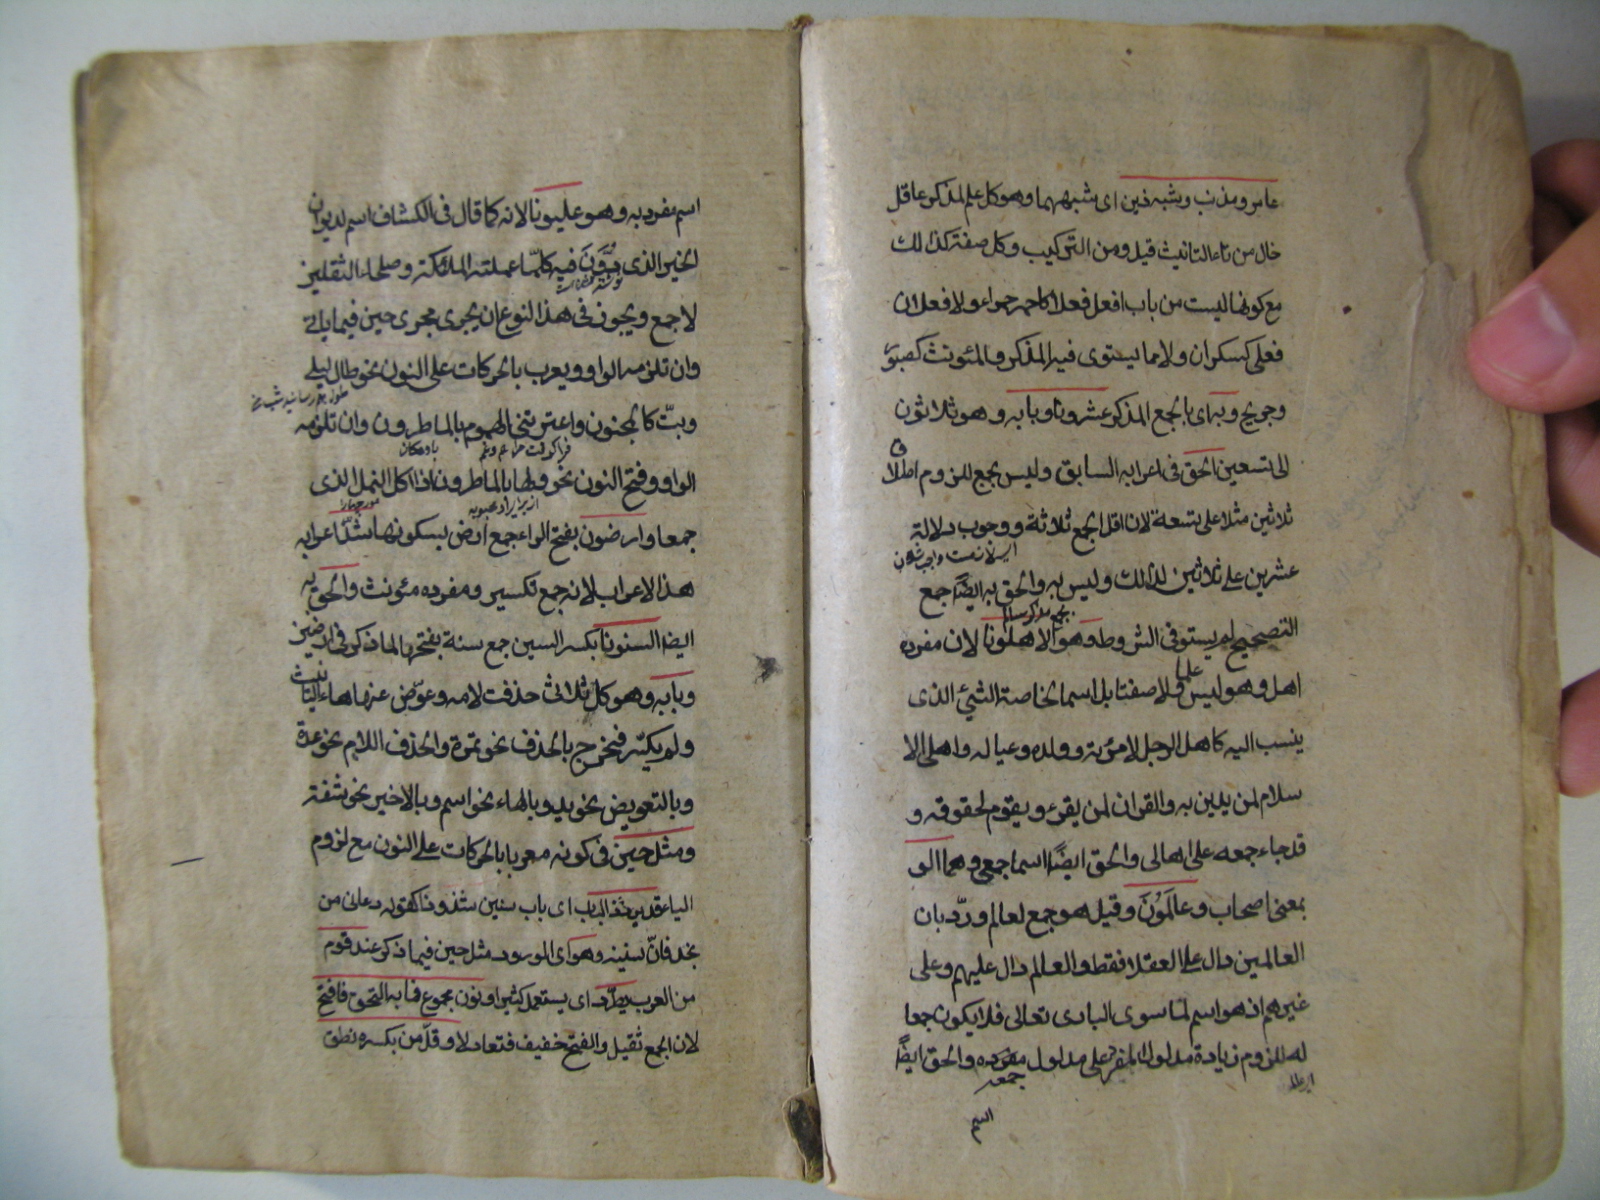 عامر ومذنب وبشبه ذين اى مشبههما وهو كل علم لمذكر عاقل
خال من تاء التانيث قيل ومن التركيب وكل صفة كذالك
مع كونها ليست من باب افعل فعلاء كاحمر حمراء ولا فعلان
فعلى كسكران ولا مما يستوى فيه المذكر والمئونث كصبور
وجريح وبه اى بالجمع المذكر عشرونا وبابه وهو ثلاثون
الى تسعين الحق فى اعرابه السابق وليس بجمع للزوم اطلاق
ثلاثين مثلا على تسعة لان اقل الجمع ثلاثة ووجوب دلالة
عشرين على ثلاثين لذالك وليس به والحق به ايضًا جمع
التصحيح لم يستوفى الشروط وهو الاهلونا لان مفرده
اهل وهو ليس علما ولا صفتا بل اسما لخاصة الشئ الذى
ينسب اليه كاهل الرجل لامرئته وولده وعياله واهل الا
سلام لمن يدين به والقران لمن يقرء ويقوم لحقوقه و
قد جاء جمعه على اهالى والحق ايضًا اسما جمع وهما الو
بمعنى اصحاب وعالَمُونَ وقيل هو جمع لعالم وردّ بان
العالمين دال على العقلا فقط والعالم دال عليهم وعلى
غيرهم اذ هو اسم لما سوى البارى تعالى فلا يكون جمعا
له للزوم زيادة مدلول المفرد على مدلول جمعه والحق ايضًا
اسم
اسم مفرد به وهو عليونا لانه كما قال فى الكشاف اسم لديوان
الخير الذى دُوِّنَ فيه كلّما عملته الملائكة وصلحاء الثقلين
لا جمع ويجوز فى هذا النوع ان يجرى مجرى حين فيما ياتى
وان تلزمه الواو ويعرب بالحركات على النون نحو طال ليلى
وبتّ كالمجنون واعترتنى الهموم بالماطرون وان تلزمه
الواو وفتح النون نحو ولها بالماطرون اذا اكل النمل الذى
جمعا وارضون بفتح الراء جمع ارض بسكونها شذّ اعرابه
هذا الاعراب لانه جمع تكسير ومفرده مئونث والحق به
ايضا السنونا بكسر السين جمع سنة بفتحها لما ذكر فى ارضين
وبابه وهو كل ثلاثى حذفت لامه وعوّض عنها هاء التانيث
ولم يكسّر فخرج بالحذف نحو تمرة والحذف اللام نحو عدة
وبالتعويض نحو يد وبالهاء نحو اسم وبالاخير نحو شفة
ومثل حين فى كونه معربا بالحركات على النون مع لزوم
الياء قد يرد ذا الباب اى باب سنين شذوذا كقوله دعانى من
نجد فانّ سنينه وهو اى الورود مثل حين فيما ذكر عند قوم
من العرب يطّرد اى يستعمل كثيرا ونون مجموع وما به التحق فافتح
لان الجمع ثقيل والفتح خفيف فتعادلا وقلّ من بكسره نطق